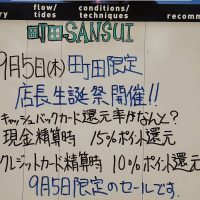 ry
flow/
tides
conditions/
techniques
recomm
町田SANSUI
9月5日(木)町田限定
店長生誕祭開催!!
キャッシュバックカード還元率がなんと?
現金精算時 15%ポイント還元
クレジットカード精算時 10%ポイント還元
9月5日限定のセールです.